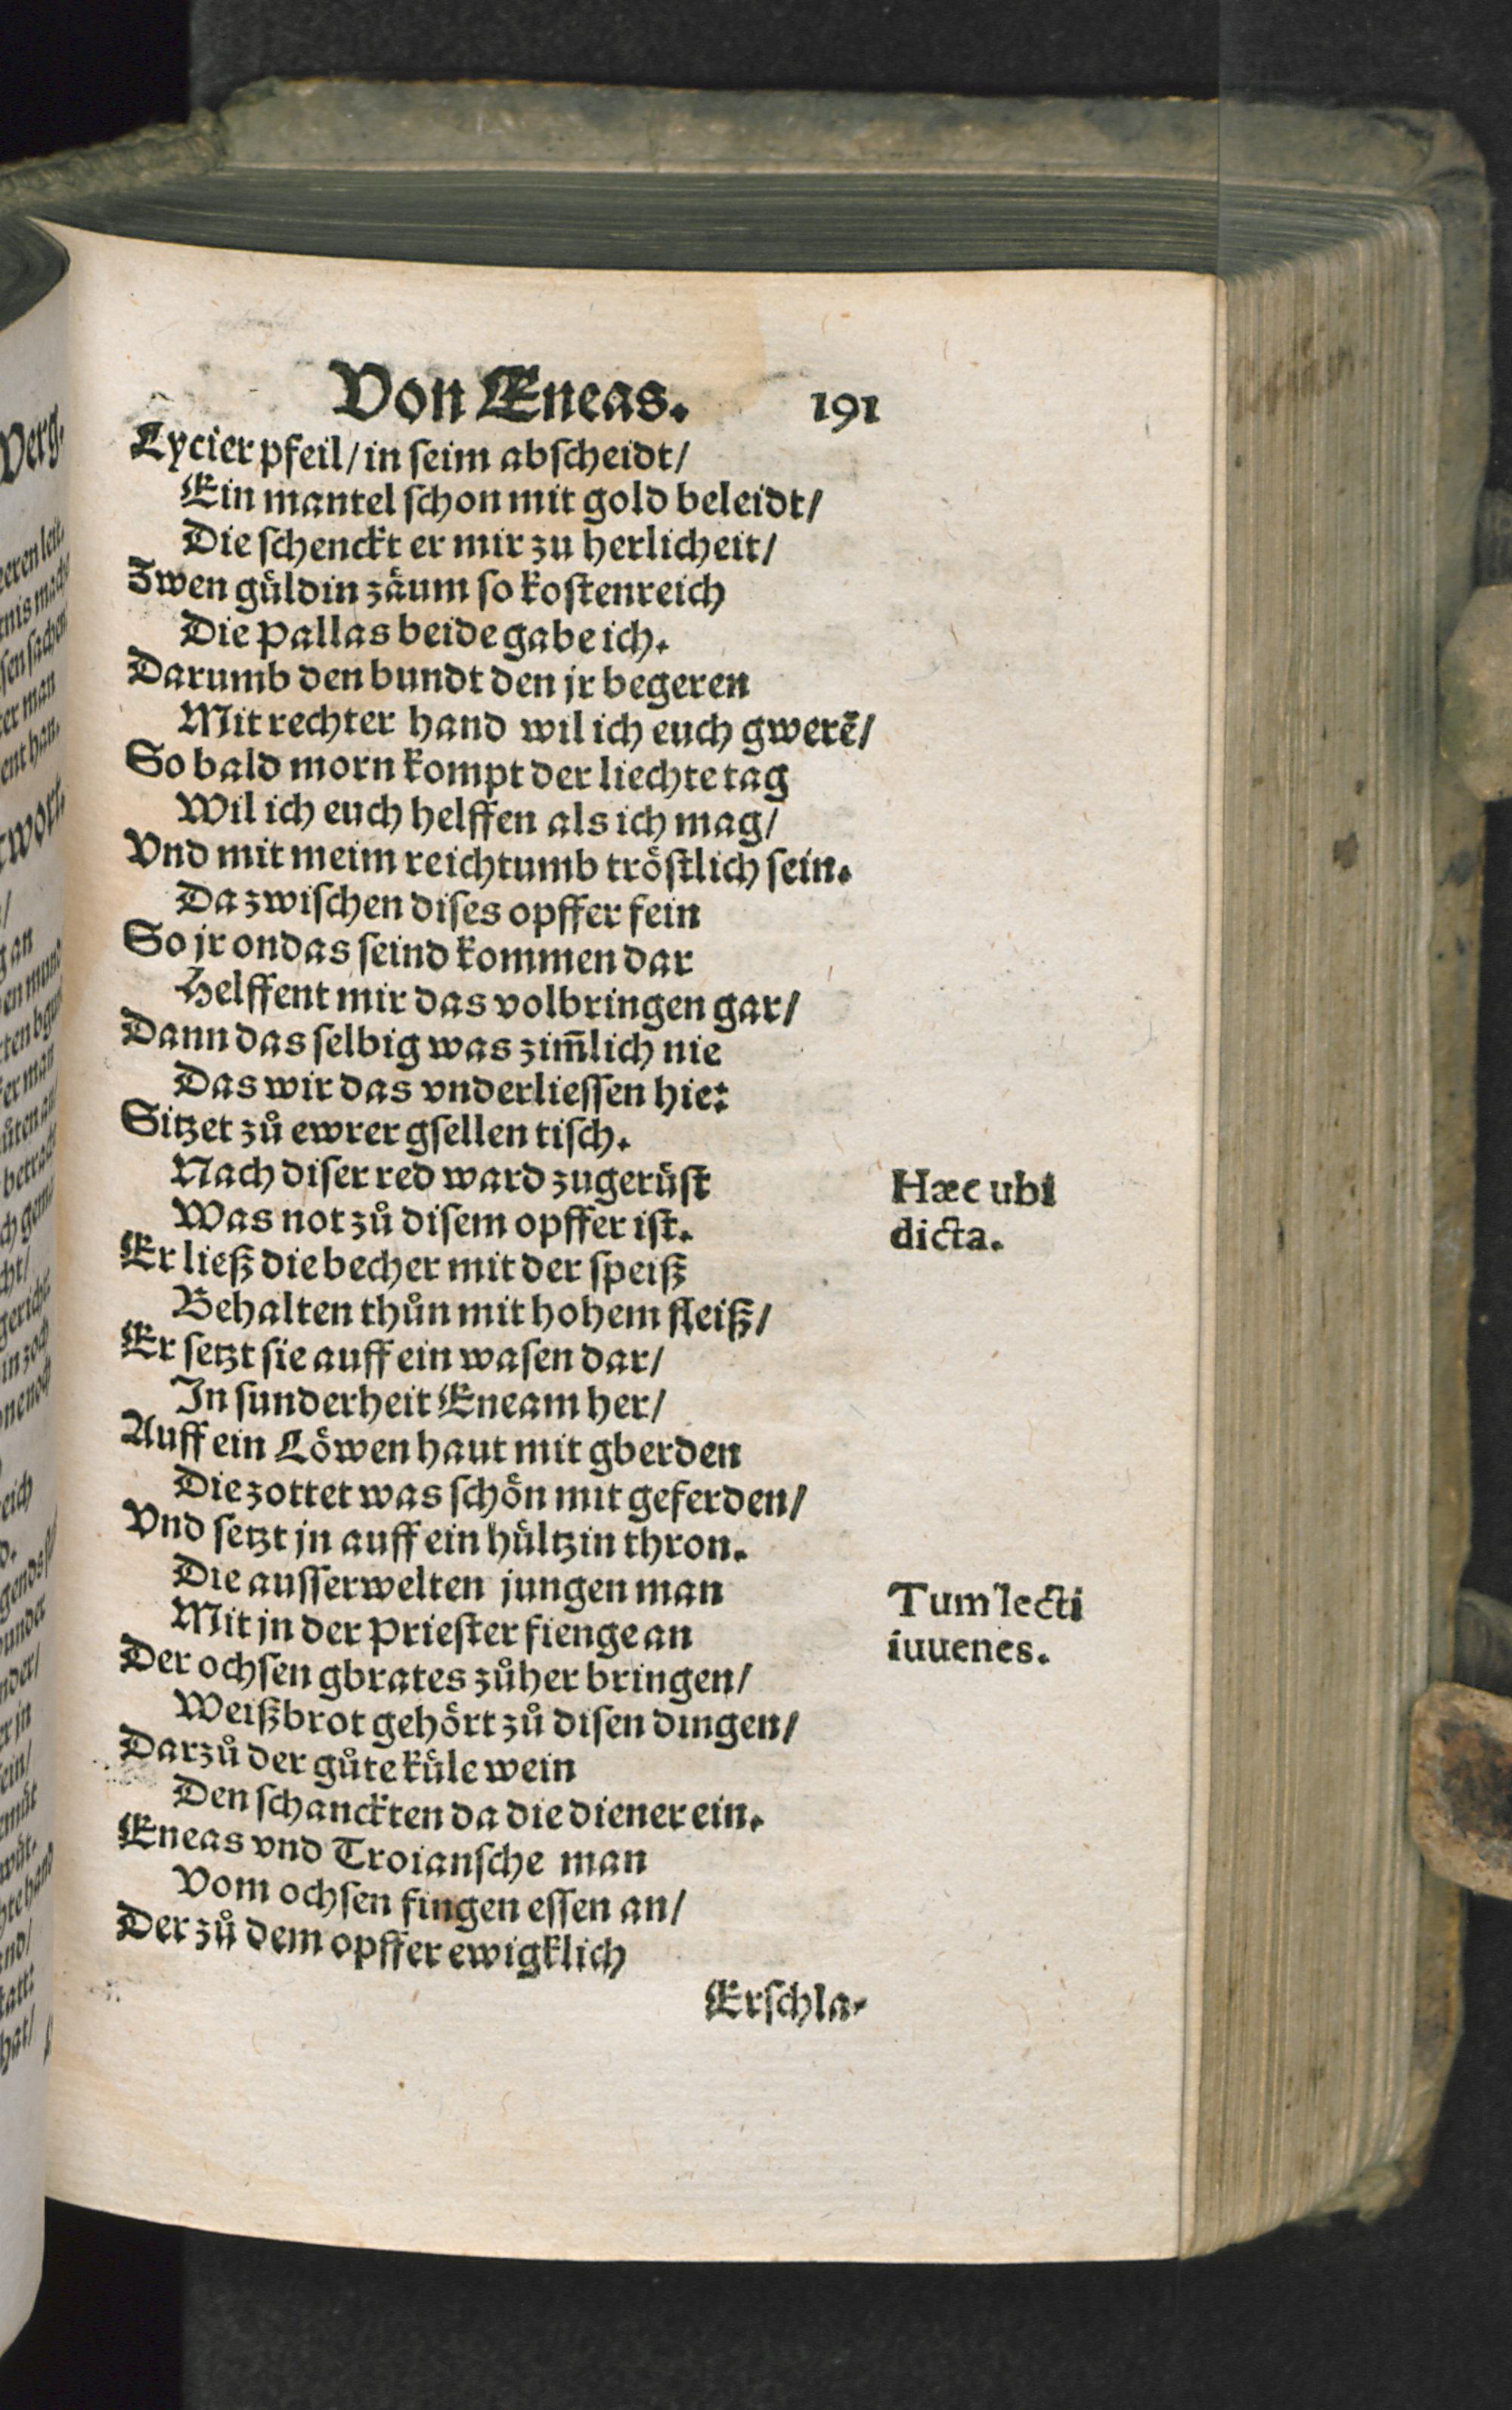 Von Eneas. 191
Lycier pfeil/ in seim abscheidt/
Ein mantel schon mit gold beleidt/
Die schenckt er mir zu herlicheit/
Zwen guͤldin zaͤum so kostenreich
Die Pallas beide gabe ich.
Darumb den bundt den jr begeren
Mit rechter hand wil ich euch gwerẽ/
So bald morn kompt der liechte tag
Wil ich euch helffen als ich mag/
Vnd mit meim reichtumb troͤstlich sein.
Da zwischen dises opffer fein
So jr on das seind kommen dar
Helffent mir das volbringen gar/
Dann das selbig was zim̃lich nie
Das wir das vnderliessen hie:
Sitzet zuͦ ewrer gsellen tisch.
Nach diser red ward zugeruͤst
Was not zuͦ disem opffer ist.
Er ließ die becher mit der speiß
Behalten thuͦn mit hohem fleiß/
Er setzt sie auff ein wasen dar/
In sunderheit Eneam her/
Auff ein Loͤwen haut mit gberden
Die zottet was schoͤn mit geferden/
Vnd setzt jn auff ein huͤltzin thron.
Die ausserwelten jungen man
Mit jn der Priester fienge an
Der ochsen gbrates zuͦher bringen/
Weißbrot gehoͤrt zuͦ disen dingen/
Darzuͦ der guͦte kuͤle wein
Den schanckten da die diener ein.
Eneas vnd Troiansche man
Vom ochsen fingen essen an/
Der zuͦ dem opffer ewigklich
Erschla-
Hæc ubi
dicta.
Tum lecti
iuuenes.